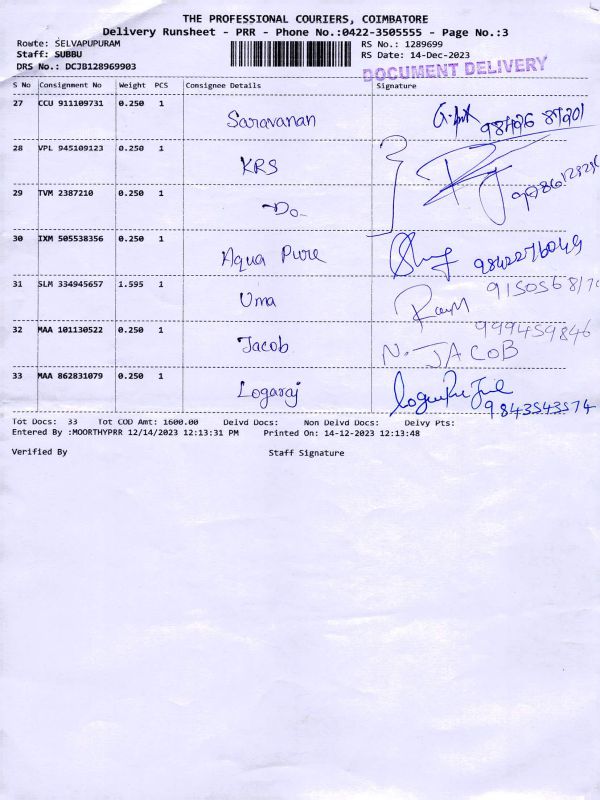 THE PROFESSIONAL COURIERS, COIMBATORE
Delivery Runsheet - PRR - Phone No.:0422-3505555 - Page No.:3
Route: SELVAPUPURAM RS No.: 1289699
Staff: SUBBU RS Date: 14-Dec-2023
DRS No.: DCJB128969903
DOCUMENT DELIVERY
S No Consignment No Weight PCS Consignee Details Signature
27 CCU 911109731 0.250 1 Saravanan
28 VPL 945109123 0.250 1 KRS
29 TVM 2387210 0.250 1 -Do-
30 IXM 505538356 0.250 1 Aqua Pure 9842276049
31 SLM 334945657 1.595 1 Uma
32 MAA 101130522 0.250 1 Jacob 999459846
N. JACOB
33 MAA 862831079 0.250 1 Logaraj 9843543574
Tot Docs: 33 Tot COD Amt: 1600.00 Delvd Docs: Non Delvd Docs: Delvy Pts:
Entered By :MOORTHYPRR 12/14/2023 12:13:31 PM Printed On: 14-12-2023 12:13:48
Verified By Staff Signature